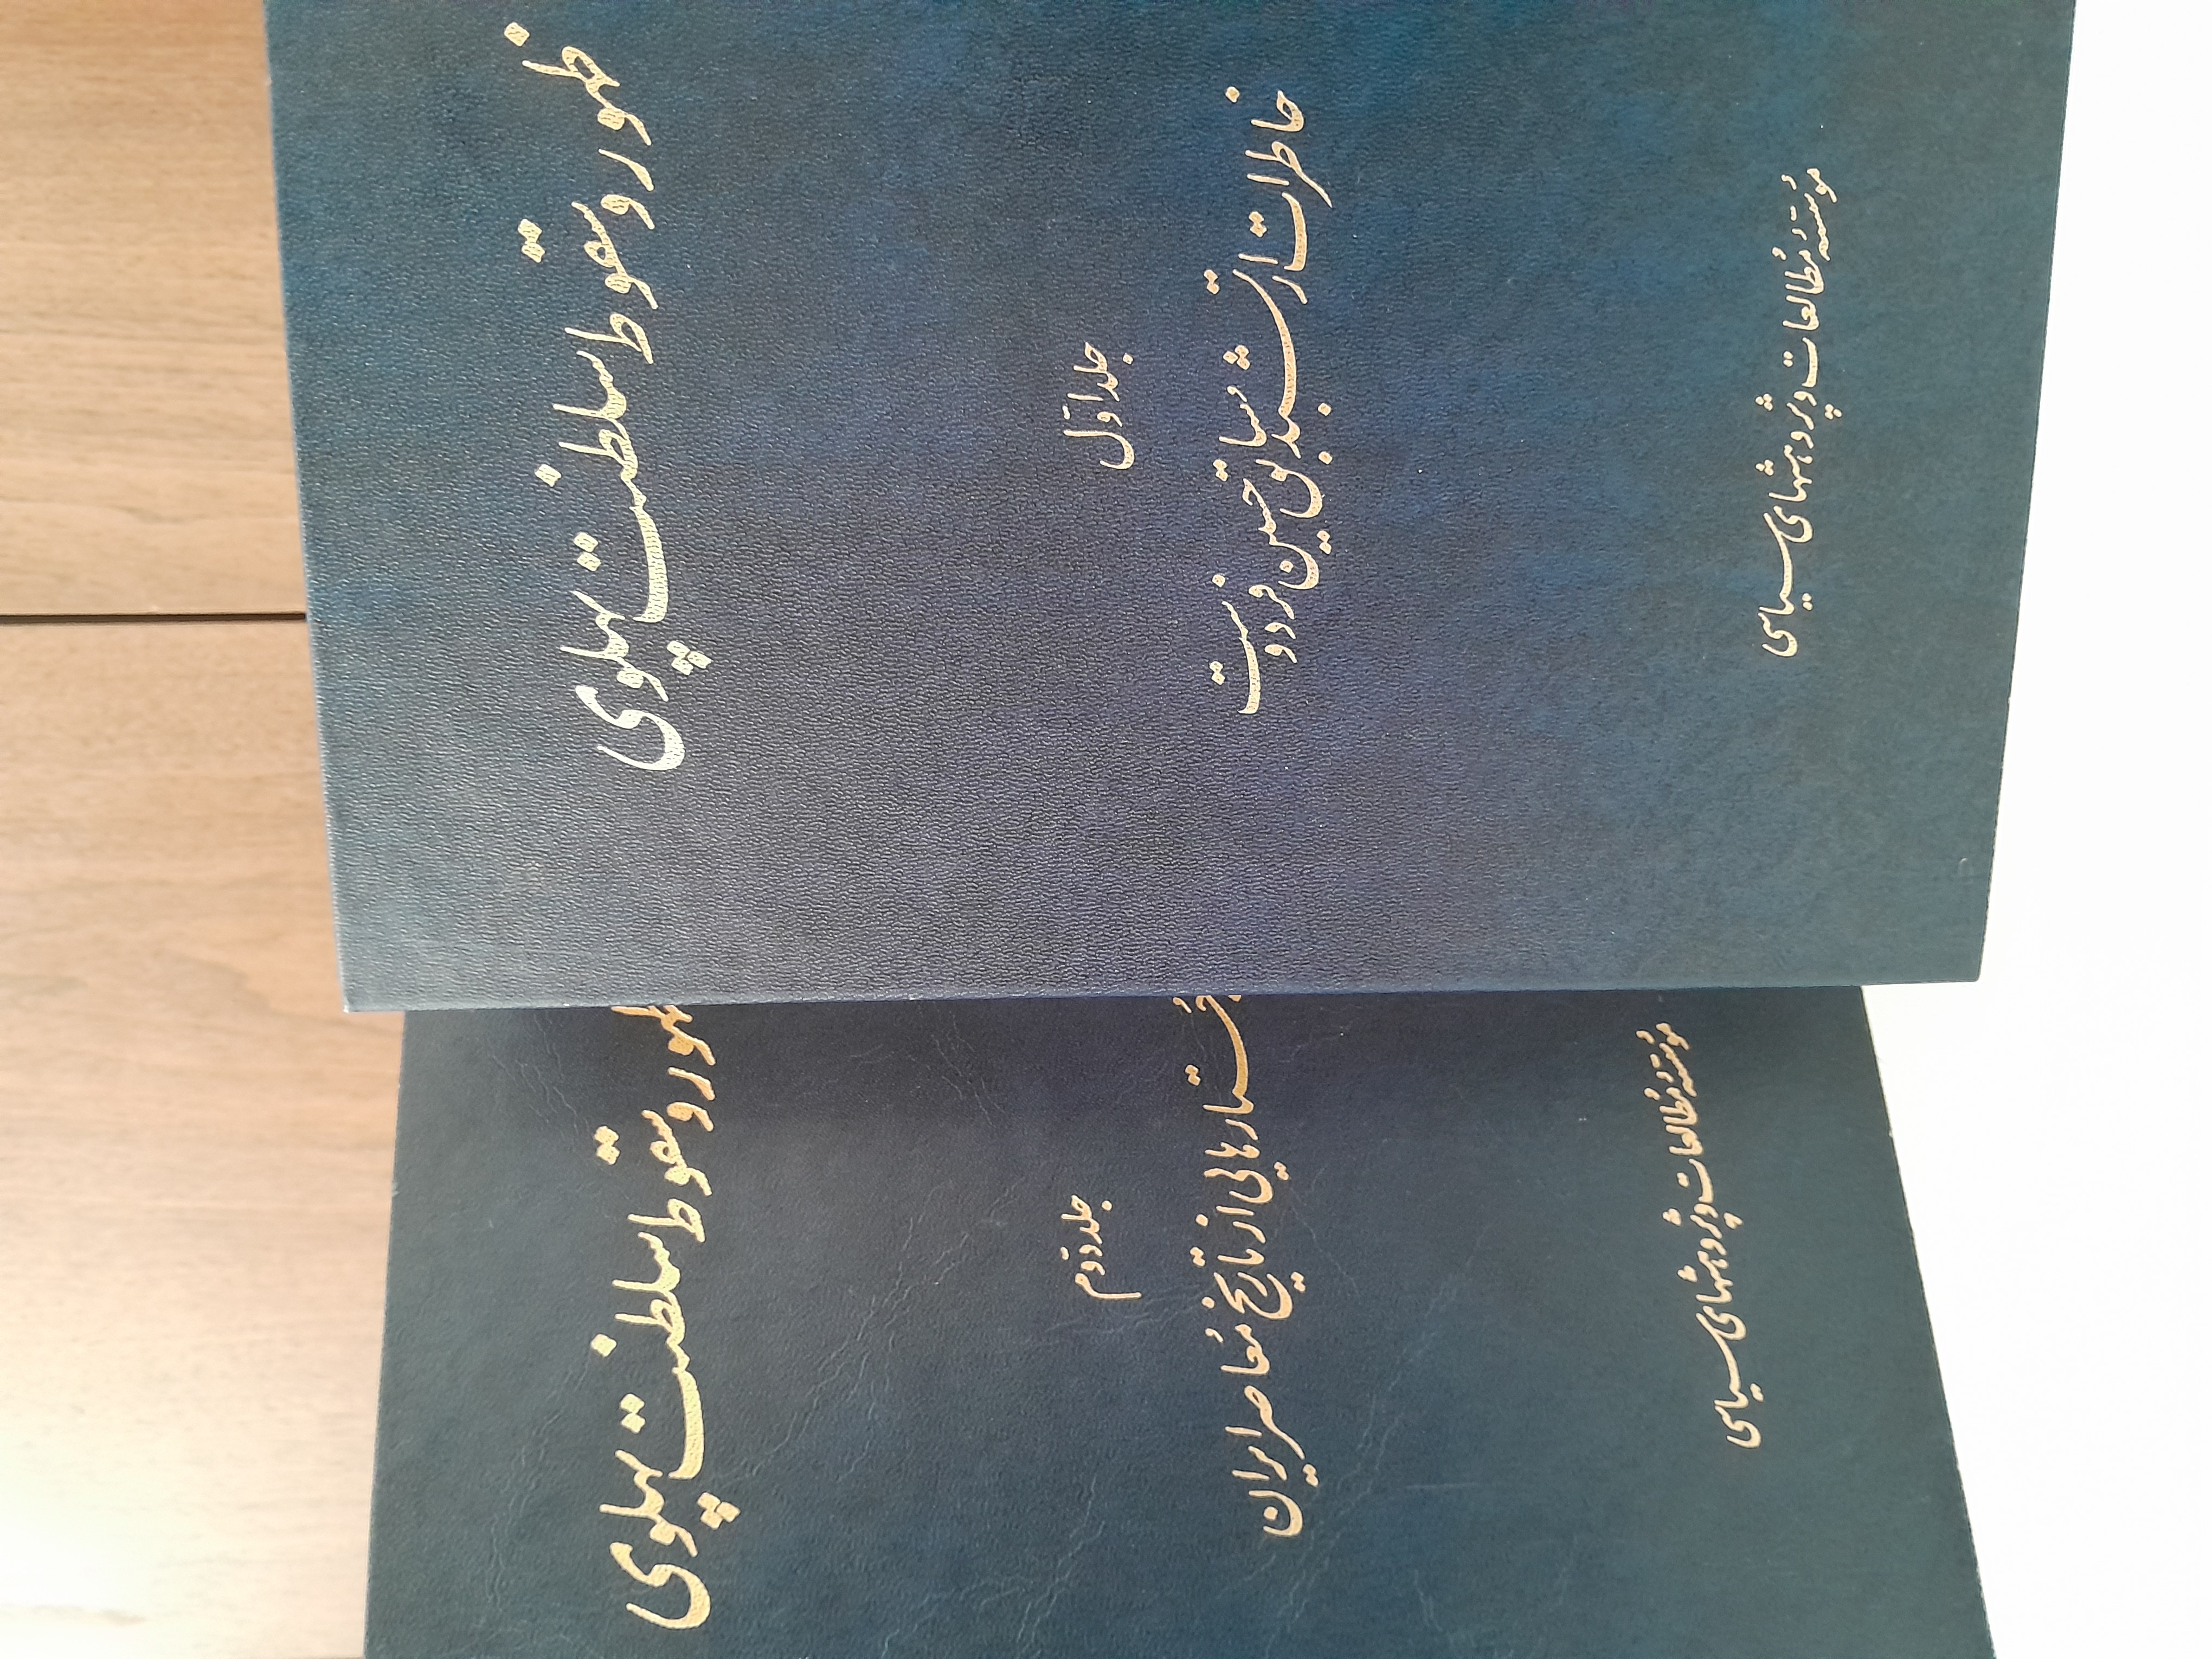 ظهور و سقوط سلطنت پهلوی
جلد اوّل
خاطرات ارتشبد سابق حسین فردوست
مؤسسه مُطالعات و پژوهشهای سیاسی
ظهور و سقوط سلطنت پهلوی
جلد دوّم
جُستارهایی از تاریخ مُعاصر ایران
مؤسسه مُطالعات و پژوهشهای سیاسی